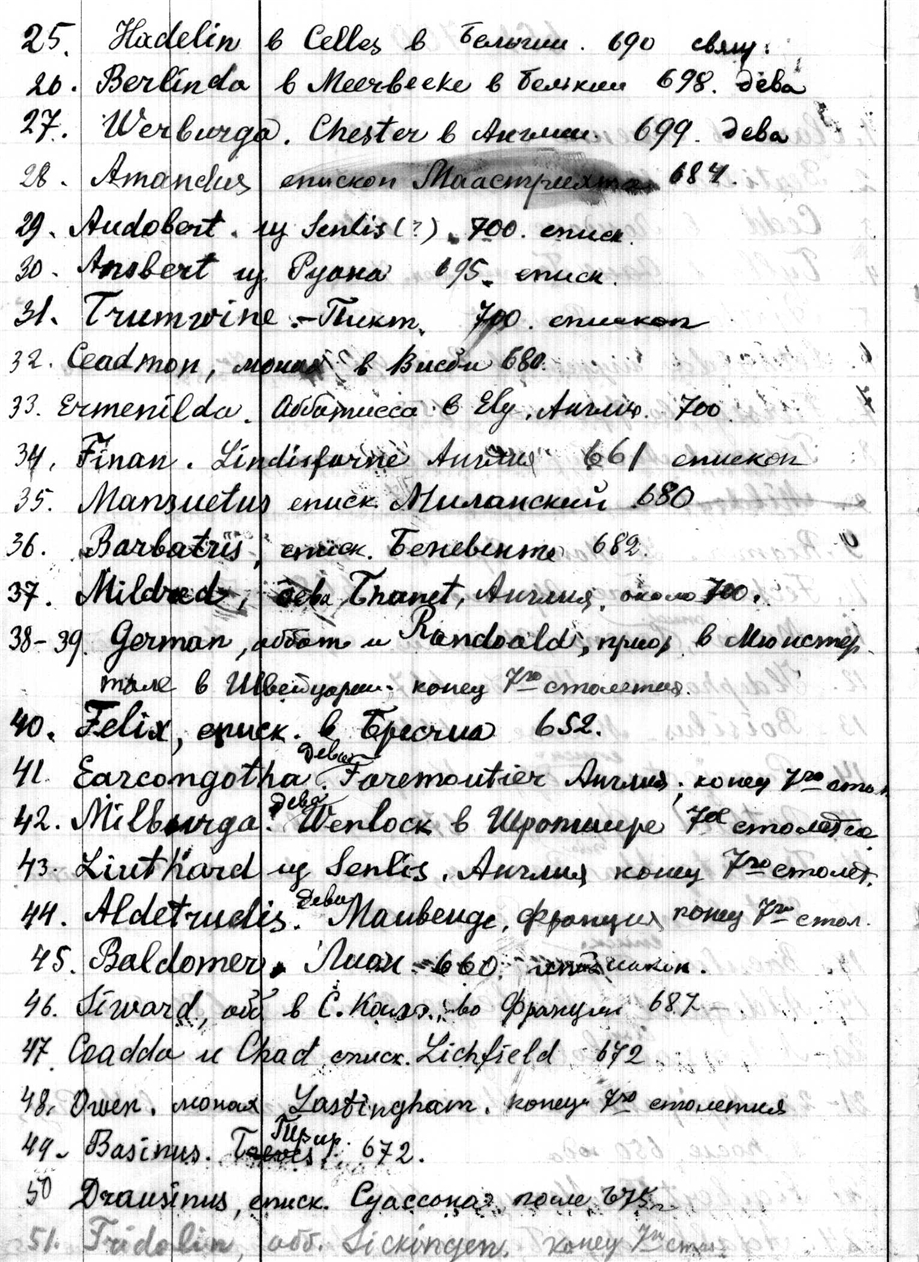 25. Hadelin в Celles в Бельгии. 690 свящ.
26. Berlinda в Meerbecke в Бельгии 698. дева
27. Werburga. Chester в Англии. 699. дева
28. Amandus епископ Маастрихта 684.
29. Audobert. из Senlis (?). 700. еписк.
30. Ansbert из Руана 695. еписк.
31. Trumwine. - Пикт. 700. епископ
32. Ceadmon, монах в Висби 680.
33. Ermenilda. Аббатисса в Ely, Англия. 700
34. Finan. Lindisfarne Англия 661 епископ
35. Mansuetus еписк. Миланский 680
36. Barbatris, еписк. Беневенто 682.
37. Mildred, дева Thanet, Англия, около 700.
38-39. German, аббат и Randoald, приор в Мюнстер
тале в Швейцарии. конец 7го столетия.
40. Felix, еписк. в Бресчиа 652.
41. Earcongotha. дева Faremoutier Англия, конец 7го стол.
42. Milburga. дева Wenlock в Шропшире 7ое столетие
43. Liuthard из Senlis, Англия конец 7го столет.
44. Aldetrudis. дева Maubeuge, Франция конец 7го стол.
45. Baldomer. Лион 660
46. Siward, абб. в С. Франции 687
47. Ceadda и Chad еписк. Lichfield 672
48. Owen. монах Lastingham. конец 7го столетия
49. Basinus. Трир. 672.
50 Drausinus, еписк. Суассона, после 675.
51. Fridolin, абб. Sickingen. конец 7го стол.